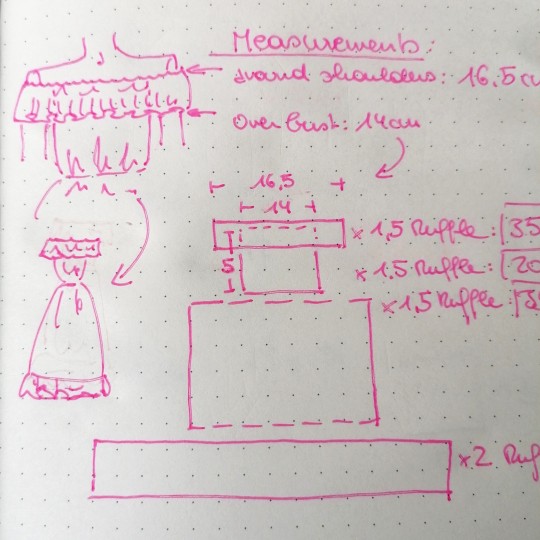 Measurements:
around shoulders: 16.5 c
Over bust: 14cm
16,5
14
x 1,5 Ruffle: 35
5
x 1,5 Ruffle: 20
x 1,5 Ruffle
x 2 Ruf